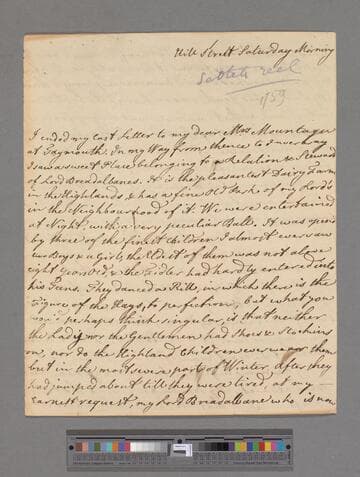 Hill Street Saturday Morning
1759
I ended my last Letter to my dear Mrs Mountague
at Taymouth. In my Way from thence to Inverary
I saw a sweet Place belonging to a Relation & Steward
of Lord Breadalbanes. It is the pleasantest Dairy Farm
in the Highlands, & has a fine Old Park of my Lord's
in the Neighbourhood of it. We were entertained
at Night, with a very peculiar Ball. It was open'd
by three of the finest Children I almost ever saw
two Boys & a Girl, the Eldest of them was not above
eight Years Old, & the had hardly entered into
his Teens. They danced a Rille, in which there is the
Figure of the Hays, to perfection, but what you
will perhaps think singular, is that neither
the Lady nor the Gentlemen had Shoes & Stockins
on, nor do the Highland Children ever wear them
but in the most severe part of Winter. After they
had jumped about till they were tired, at my
Earnest request, my Lord Breadalbane who is now